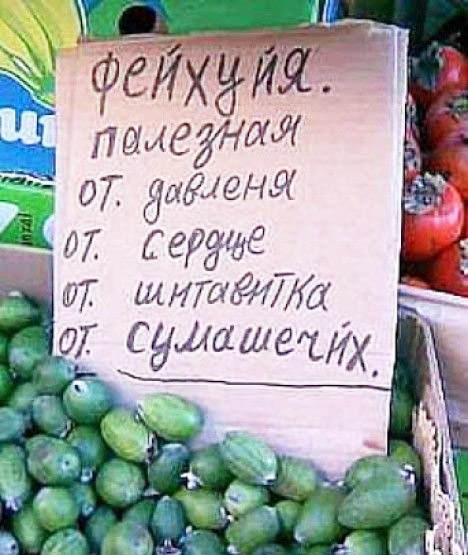 фейхуйя.
палезная
от. давленя
от. сердце
от. шитавитка
от. сумашечйх.